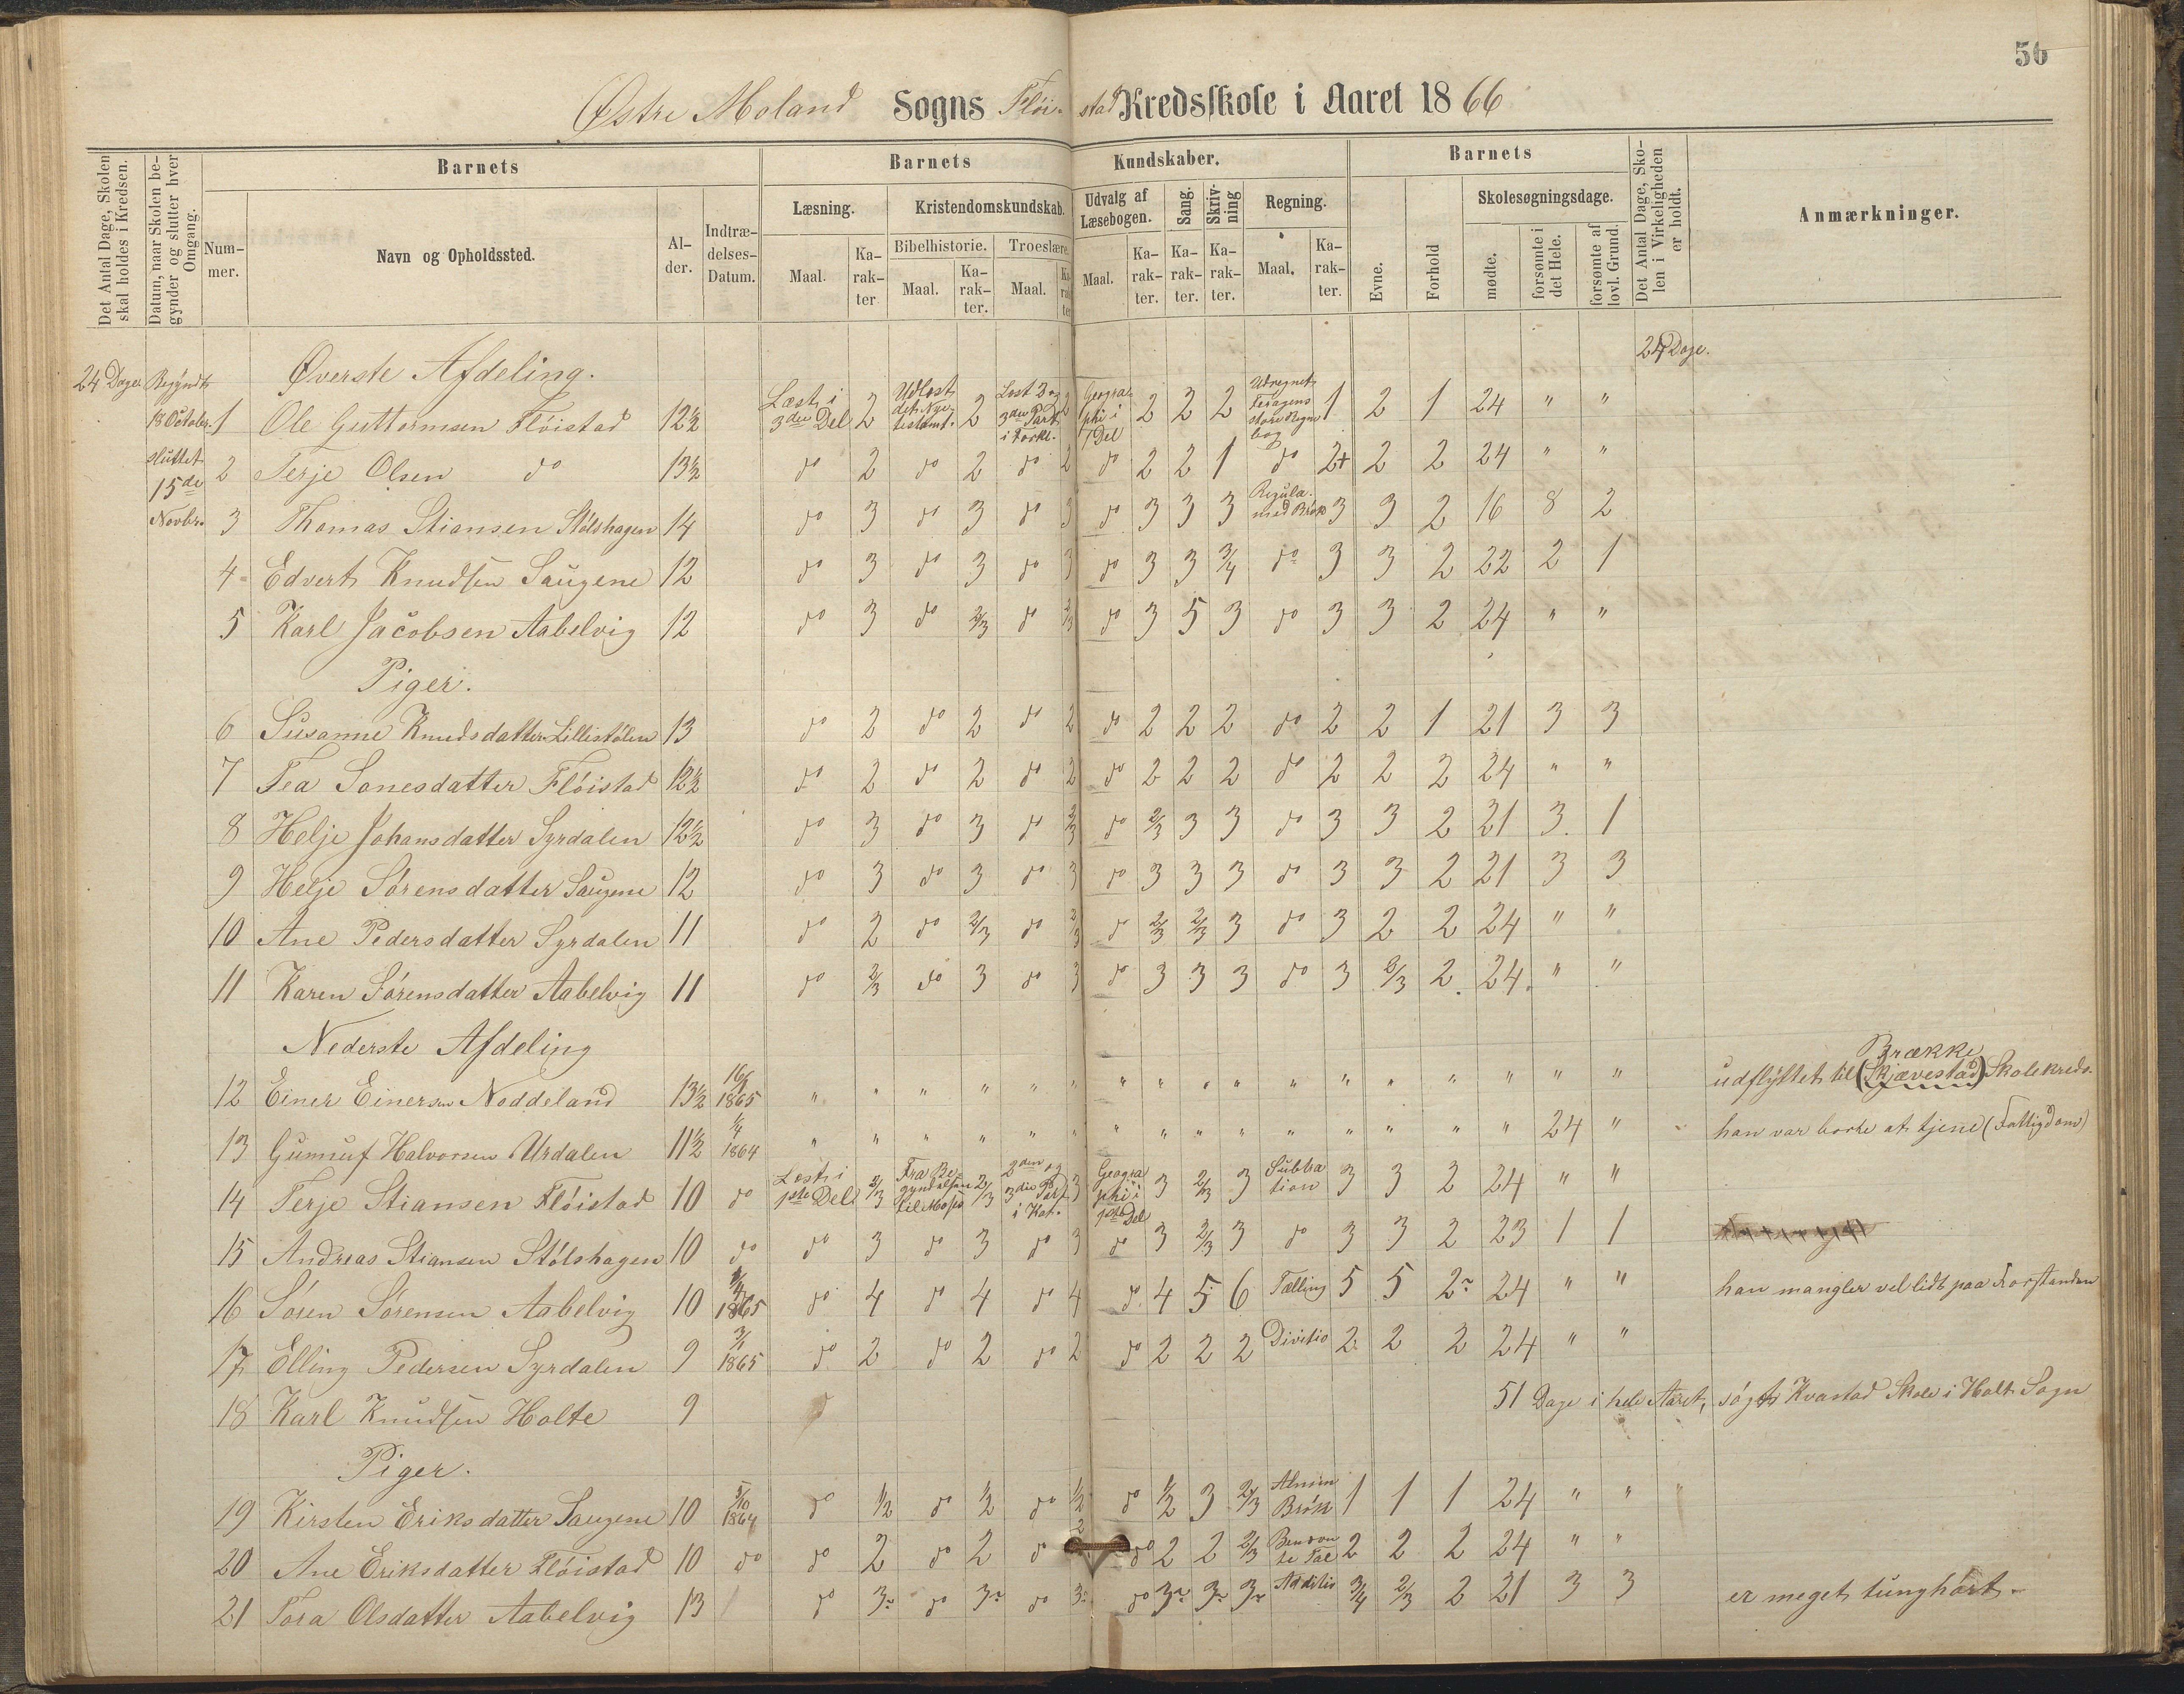 56
Østre Moland Sogns Fløistad Kredsskole i Aaret 1866
Det Antal Dage, Skolen skal holdes i Kredsen.
Datum, naar Skolen begynder og slutter hver Omgang.
Barnets
Nummer.
Navn og Opholdssted.
Alder.
Indtrædelses-Datum.
Barnets Kundskaber.
Læsning.
Maal.
Karakter
Kristendomskundskab.
Bibelhistorie.
Maal.
Karakter.
Troeslære.
Maal.
Karakter
Udvalg af Læsebogen.
Maal.
Karakter.
Sang.
Karakter.
Skrivning
Karakter.
Regning.
Maal.
Karakter.
Barnets
Evne.
Forhold
Skolesøgningsdage.
mødte.
forsømte i det Hele.
forsømte af lovl. Grund.
Det Antal Dage, Skolen i Virkeligheden er holdt.
Anmærkninger.
24 Dage Begyndt 18 October sluttet 15de Novbr.
24 Dage.
Øverste Afdeling.
1 Ole Guttormsen Fløistad 12½ Læst i 3die Del 2 Udlæst det Nye testamt. 2 Læst 2 og 3die Part i Forkl. 2 Geographi i 1 Del 2 2 2 Udregnet Feragens store Regnebog 1 2 1 24 " "
2 Terje Olsen do 13½ do 2 do 2 do 2 do 2 2 1 do 2+ 2 2 24 " "
3 Thomas Stiansen Stølshagen 14 do 3 do 3 do 3 do 3 3 3 Regula. med Brøk 3 3 2 16 8 2
4 Edvert Knudsen Saugene 12 do 3 do 3 do 3 do 3 3 3/4 do 3 3 2 22 2 1
5 Karl Jacobsen Aabelvig 12 do 3 do 2/3 do 2/3 do 3 5 3 do 3 3 2 24 " "
Piger.
6 Susanne Knudsdatter Lillestølen 13 do 2 do 2 do 2 do 2 2 2 do 2 2 1 21 3 3
7 Tea Sonesdatter Fløistad 12½ do 2 do 2 do 2 do 2 2 2 do 2 2 2 24 " "
8 Helje Johansdatter Syrdalen 12½ do 3 do 3 do 2/3 do 2/3 3 3 do 3 3 2 21 3 1
9 Helje Sørensdatter Saugene 12 do 3 do 3 do 3 do 3 3 3 do 3 3 2 21 3 3
10 Ane Pedersdatter Syrdalen 11 do 2 do 2/3 do 2/3 do 2/3 2/3 3 do 3 2 2 24 " "
11 Karen Sørensdatter Aabelvig 11 do 2/3 do 3 do 3 do 3 3 3 do 3 2/3 2 24 " "
Nederste Afdeling
12 Einer Einersen Noddeland 13½ 16/1 1865 " " " " " " " " " " " " " " " " " udflyttet til (Skjævestad) Brække Skolekreds.
13 Gunnuf Halvorsen Urdalen 11½ 1/4 1864 " " " " " " " " " " " " " " " 24 " han var borte at tjene (Fattigdom)
14 Terje Stiansen Fløistad 10 do Læst i 1ste Del 2/3 Fra Begyndelsen til Moses 2/3 2den og 3die Part i Kat. 3 Geographi i 1ste Del 3 2/3 3 Subtration 3 3 2 24 " "
15 Andreas Stiansen Stølshagen 10 do do 3 do 3 do 3 do 3 2/3 3 do 3 3 2 23 1 1
16 Søren Sørensen Aabelvig 10 1/4 1865 do 4 do 4 do 4 do 4 5 6 Tælling 5 5 2÷ 24 " " han mangler vel lidt paa Forstanden
17 Elling Pedersen Syrdalen 9 3/1 1865 do 2 do 2 do 2 do 2 2 2 Divitio 2 2 2 24 " "
18 Karl Knudsen Holte 9 51 Dage i hele Aaret, søgt Kvastad Skole i Holt Sogn
Piger.
19 Kirsten Eriksdatter Saugene 10 5/10 1864 do 1/2 do 1/2 do 1/2 do 1/2 3 2/3 Almin Brøk 1 1 1 24 " "
20 Ane Eriksdatter Fløistad 10 do do 2 do 2 do 2 do 2 2 2/3 Benævnte Tal 2 2 2 24 " "
21 Tora Olsdatter Aabelvig 13 do 3÷ do 3÷ do 3÷ do 3÷ 3÷ 3÷ Additio 3/4 2/3 2 21 3 3 er meget tunghørt.